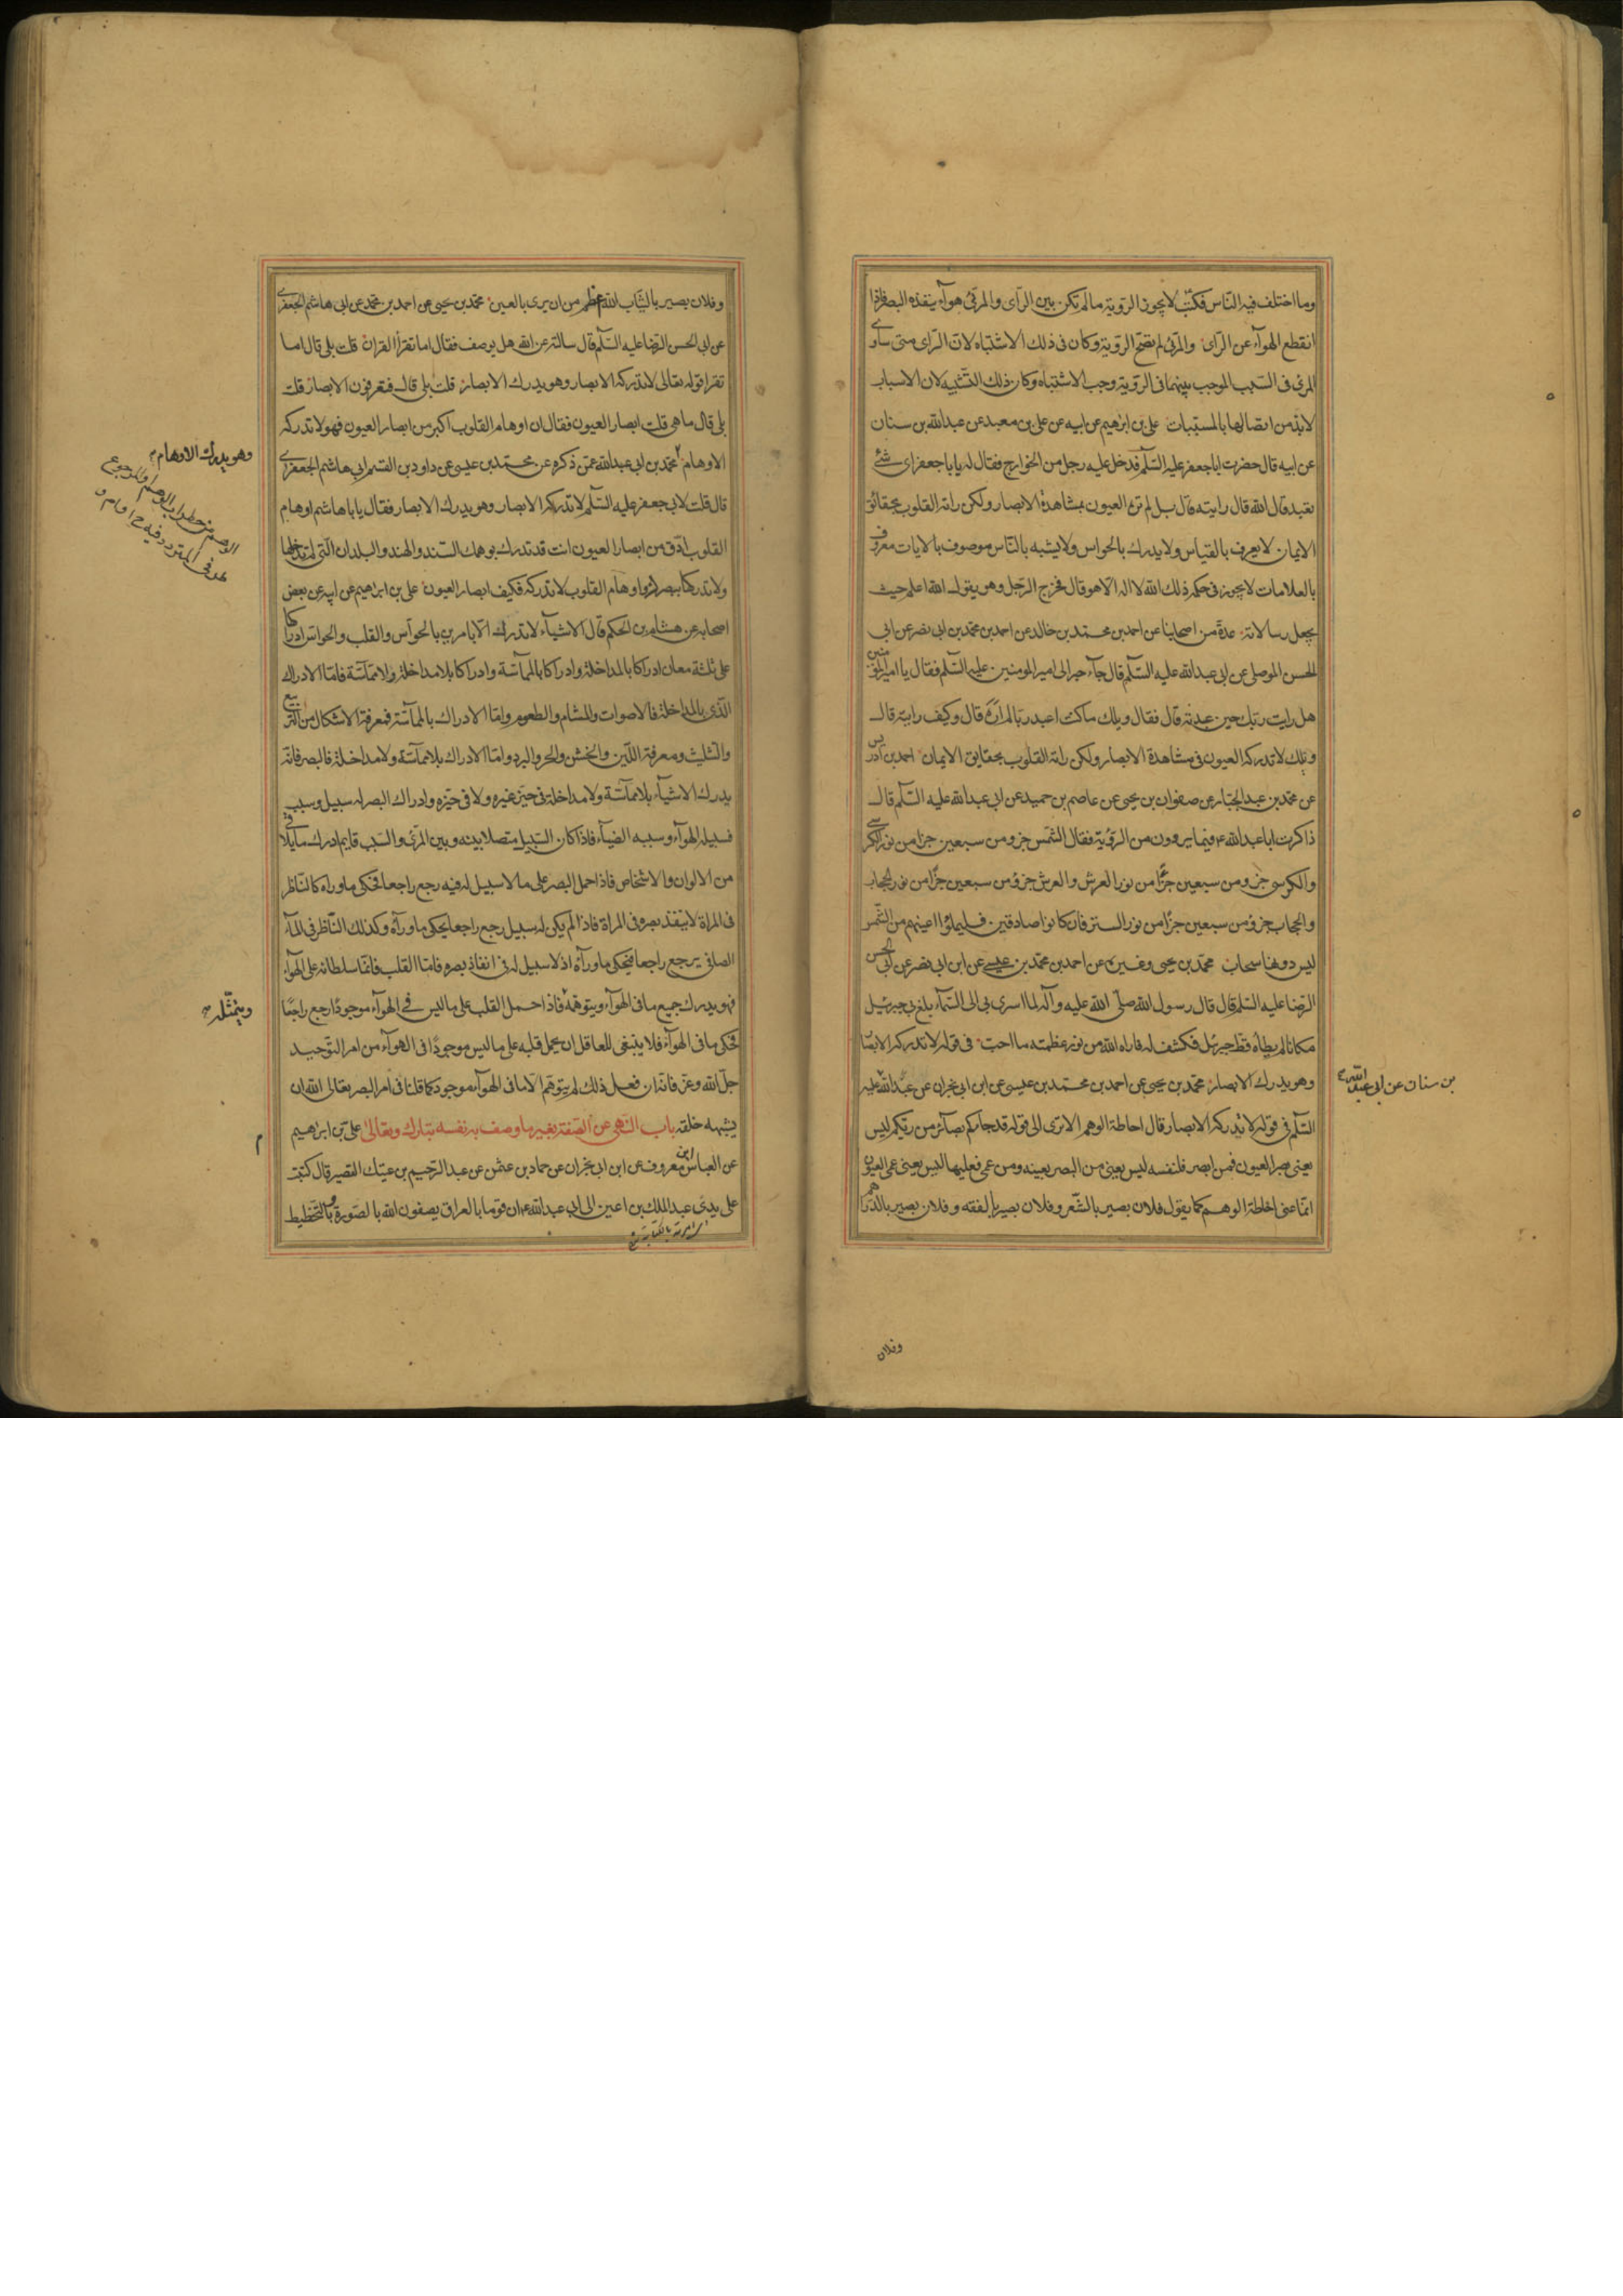 وما اختلف فيه الناس فكتب لا يجوز الروية ما لم تكن بين الرآى والمرئى هوآء ينفذه البصر فاذا
انقطع الهوآء عن الرآى والمرئى لم تصح الروية وكان فى ذلك الاشتباه لان الرآى متى ساوى
المرئى فى السبب الموجب بينهما فى الروية وجب الاشتباه وكان ذلك التشبيه لان الاسباب
لا بد من اتصالها بالمسببات على بن ابرهيم عن ابيه عن على بن معبد عن عبدالله بن سنان
عن ابيه قال حضرت ابا جعفر عليه السلم فدخل عليه رجل من الخوارج فقال له يا با جعفر اى شئ
تعبد قال الله قال رايته قال بل لم تره العيون بمشاهدة الابصار ولكن راته القلوب بحقائق
الايمان لا يعرف بالقياس ولا يدرك بالحواس ولا يشبه بالناس موصوف بالايات معروف
بالعلامات لا يجوز فى حكمه ذلك الله لا اله الا هو قال فخرج الرجل وهو يقول الله اعلم حيث
يجعل رسالاته عدة من اصحابنا عن احمد بن محمد بن خالد عن احمد بن محمد بن ابى نصر عن ابى
الحسن الموصلى عن ابى عبدالله عليه السلم قال جآء حبر الى امير المومنين عليه السلم فقال يا امير المومنين
هل رايت ربك حين عبدته قال فقال ويلك ما كنت اعبد ربا لم اره قال وكيف رايته قال
ويلك لا تدركه العيون فى مشاهدة الابصار ولكن راته القلوب بحقايق الايمان احمد بن ادريس
عن محمد بن عبد الجبار عن صفوان بن يحيى عن عاصم بن حميد عن ابى عبدالله عليه السلم قال
ذاكرت ابا عبدالله ع فيما يروون من الروية فقال الشمس جزو من سبعين جزا من نور الكرسى
والكرسى جزو من سبعين جزا من نور العرش والعرش جزو من سبعين جزا من نور الحجاب
والحجاب جزو من سبعين جزا من نور الستر فان كانوا صادقين فليملؤا اعينهم من الشمس
ليس دونها سحاب محمد بن يحيى وغيره عن احمد بن محمد بن عيسى عن ابن ابى نصر عن ابى الحسن
الرضا عليه السلم قال قال رسول الله صلى الله عليه وآله لما اسرى بى الى السمآء بلغ بى جبرئيل
مكانا لم يطأه قط جبرئيل فكشف له فاراه الله من نور عظمته ما احب فى قوله لا تدركه الابصار
وهو يدرك الابصار محمد بن يحيى عن احمد بن محمد بن عيسى عن ابن ابى نجران عن عبدالله عليه
بن سنان عن ابى عبدالله ع
السلم فى قوله لا تدركه الابصار قال احاطة الوهم الا ترى الى قوله قد جاءكم بصآئر من ربكم ليس
يعنى بصر العيون فمن ابصر فلنفسه ليس يعنى من البصر بعينه ومن عمى فعليها ليس يعنى عمى العيون
انما عنى احاطة الوهم كما يقول فلان بصير بالشعر وفلان بصير بالفقه وفلان بصير بالدراهم
وفلان
وفلان بصير بالثياب الله اعظم من ان يرى بالعين محمد بن يحيى عن احمد بن محمد عن ابى هاشم الجعفرى
عن ابى الحسن الرضا عليه السلم قال سالته عن الله هل يوصف فقال اما تقرأ القران قلت بلى قال اما
تقرا قوله تعالى لا تدركه الابصار وهو يدرك الابصار قلت بلى قال فتعرفون الابصار قلت
بلى قال ما هى قلت ابصار العيون فقال ان اوهام القلوب اكبر من ابصار العيون فهو لا تدركه
وهو يدرك الاوهام
الاوهام محمد بن ابى عبدالله عمن ذكره عن محمد بن عيسى عن داود بن القسم ابى هاشم الجعفرى
قال قلت لابى جعفر عليه السلم لا تدركه الابصار وهو يدرك الابصار فقال يا با هاشم اوهام
القلوب ادق من ابصار العيون انت قد تدرك بوهمك السند والهند والبلدان التى لم تدخلها
ولا تدركها ببصرك واوهام القلوب لا تدركه فكيف ابصار العيون على بن ابراهيم عن ابيه عن بعض
اصحابه عن هشام بن الحكم قال الاشيآء لا تدرك الا بامرين بالحوآس والقلب والحواس ادراكها
على ثلثة معان ادراكا بالمداخلة وادراكا بالممآسة وادراكا بلا مداخلة ولا ممآسة فاما الادراك
الذى بالمداخلة فالاصوات والمشام والطعوم واما الادراك بالممآسة فمعرفة الاشكال من التربيع
والتثليث ومعرفة اللين والخشن والحر والبرد واما الادراك بلا ممآسة ولا مداخلة فالبصر فانه
يدرك الاشيآء بلا ممآسة ولا مداخلة فى حيز غيره ولا فى حيزه وادراك البصر له سبيل وسبب
فسبيله الهوآء وسببه الضيآء فاذا كان السبيل متصلا بينه وبين المرئى والسبب قايم ادرك ما يلاقى
من الالوان والاشخاص فاذا حمل البصر على ما لا سبيل له فيه رجع راجعا فحكى ما وراه كالناظر
فى المراة لا ينفذ بصره فى المراة فاذا لم يكن له سبيل رجع راجعا يحكى ما ورآه وكذلك الناظر فى المآء
الصافى يرجع راجعا فيحكى ما ورآه اذ لا سبيل له فى انفاذ بصره فاما القلب فانما سلطانه على الهوآء
فهو يدرك جميع ما فى الهوآء ويتوهمه فاذا حمل القلب على ما ليس فى الهوآء موجودا رجع راجعا
ويتمثله
فحكى ما فى الهوآء فلا ينبغى للعاقل ان يحمل قلبه على ما ليس موجودا فى الهوآء من امر التوحيد
جل الله وعز فانه ان فعل ذلك لم يتوهم الا ما فى الهوآء موجود كما قلنا فى امر البصر تعالى الله ان
يشبهه خلقه باب النهى عن الصفة بغير ما وصف به نفسه تبارك وتعالى على بن ابراهيم
عن العباس بن معروف عن ابن ابى نجران عن حماد بن عثمن عن عبد الرحيم بن عتيك القصير قال كتبت
على يدى عبد الملك بن اعين الى ابى عبدالله ع ان قوما بالعراق يصفون الله بالصورة وبالتخطيط